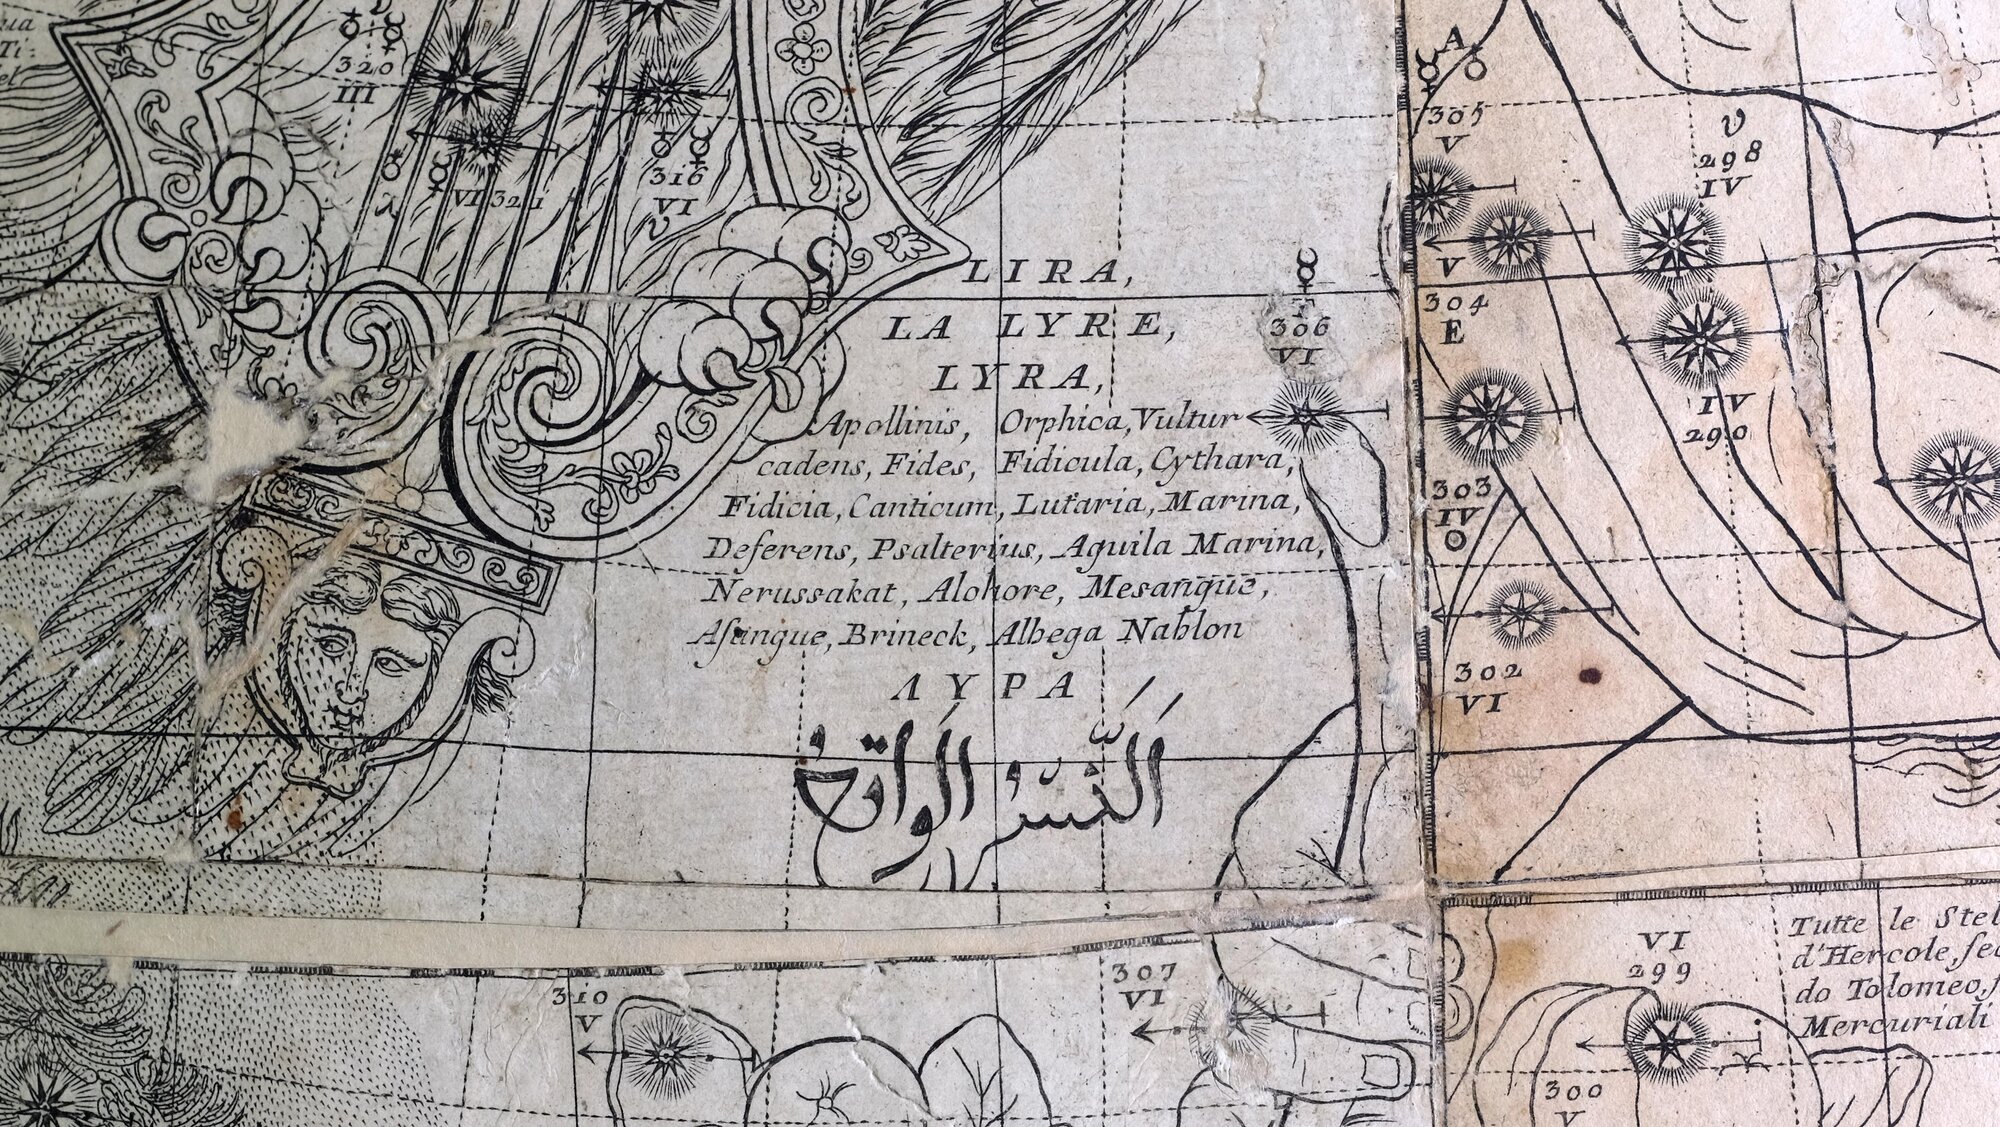 320
III
VI 321
316
VI
LIRA,
LA LYRE,
LYRA,
Apollinis, Orphica, Vultur
cadens, Fides, Fidicula, Cythara,
Fidicia, Canticum, Lutaria, Marina,
Deferens, Psalterius, Aquila Marina,
Nerussakat, Alohore, Mesanque,
Asangue, Brineck, Albega Nablon
ΛΥΡΑ
اَلنَّسْرُ الَواقعُ
306
VI
A
305
V
V
304
E
303
IV
O
302
VI
υ
298
IV
IV
290
310
V
307
VI
VI
299
300
V
Tutte le Stel
d'Hercole, sec
do Tolomeo, s
Mercuriali